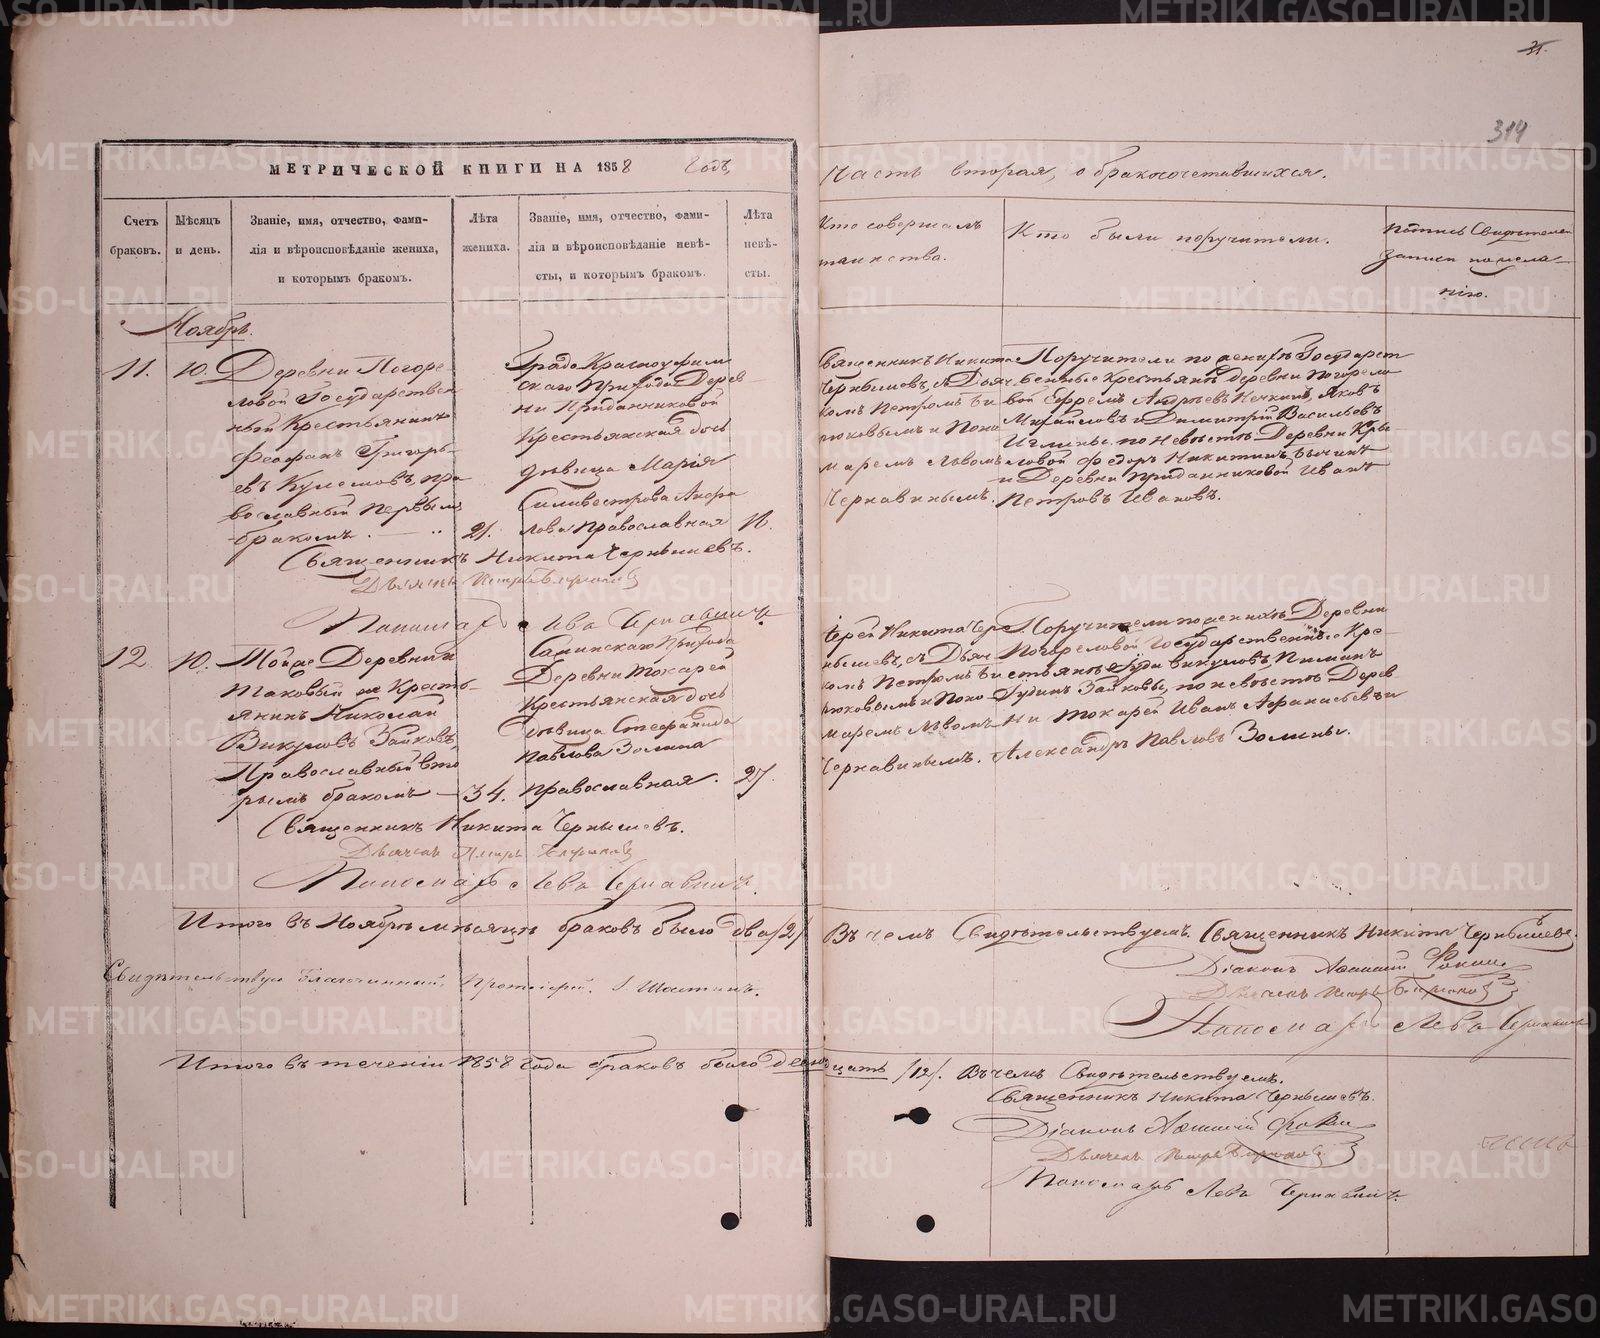 31.
319
МЕТРИЧЕСКОЙ КНИГИ НА 1858 Годъ
Часть вторая, о бракосочетавшихся.
Счетъ браковъ.
Мѣсяцъ и день.
Званіе, имя, отчество, фами-
лія и вѣроисповѣданіе жениха,
и которымъ бракомъ.
Лѣта жениха.
Званіе, имя, отчество, фами-
лія и вѣроисповѣданіе невѣ-
сты, и которымъ бракомъ.
Лѣта невѣ-
сты.
Кто совершалъ
таинства.
Кто были поручители.
Подпись Свидѣтелей
записи по жела-
нію.
Ноябрь.
11. 10.
Деревни Погоре-
ловой Государствен
ный Крестьянинъ
Феофанъ Григорь-
евъ Кулешовъ, пра
вославный первымъ
бракомъ.
21.
Града Красноуфим
скаго Прихода Дерев-
ни Приданниковой
Крестьянская дочь
дѣвица Марія
Силивестрова
лова Православная
Священникъ Никита
Чернышевъ, съ Дьяч
комъ Петромъ Би
рюковымъ и Поно
маремъ Львомъ
Чернавинымъ.
Поручители по женихѣ Государст
венные крестьянѣ деревни Погорело
вой Ефремъ Андреевъ Яковъ
Михайловъ и Димитрій Васильевъ
по невѣстѣ Деревни Кры
ловой Федоръ Никитинъ
и Деревни Приданниковой Иванъ
Петровъ Ивановъ.
Священникъ Никита Чернышевъ.
Дьячекъ Петръ Бирюковъ
Пономарь Левъ Чернавинъ
12 10.
Тойже Деревни и
таковый же Кресть-
янинъ Николай
Викуловъ Зайковъ,
Православный вто
рымъ бракомъ
34.
Саминскаго Прихода
Деревни Токарей
Крестьянская дочь
дѣвица Стефанида
Павлова Золина
православная.
27.
Іерей Никита Чер
нышевъ, съ Дьяч
комъ Петромъ Би
рюковымъ и Поно
маремъ Львомъ
Чернавинымъ.
Поручители по женихѣ Деревни
Погореловой Государственные Кре-
стьянѣ Гуди Викуловъ, Пиминъ
Гудинъ Зайковы, по невѣстѣ Дерев
ни Токарей Иванъ Афанасьевъ и
Александръ Павловъ Золины.
Священникъ Никита Чернышевъ.
Дьячекъ Петръ Бирюковъ
Пономарь Левъ Чернавинъ.
Итого въ Ноябрѣ мѣсяцѣ браковъ было два /2/
Въ чемъ Свидѣтельствуемъ. Священникъ Никита Чернышевъ.
Діаконъ Фокинъ
Дьячекъ Петръ Бирюковъ
Пономарь Левъ Чернавинъ
Свидѣтельствую Благочинный, Протоіерей. І. Шастинъ.
Итого въ теченіи 1858 года браковъ было двенадцать /12/. Въ чемъ Свидѣтельствуемъ.
Священникъ Никита Чернышевъ.
Діаконъ Фокинъ
Дьячекъ Петръ Бирюковъ
Пономарь Левъ Чернавинъ.
METRIKI.GASO-URAL.RU